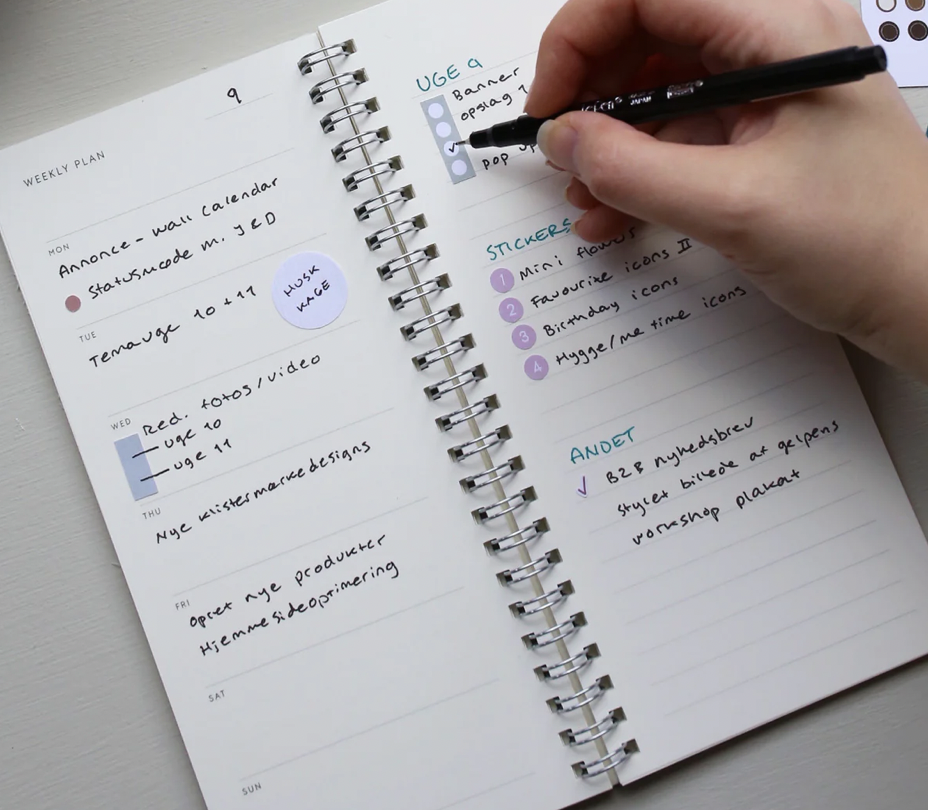 9
WEEKLY PLAN
MON
Annonce - Wall Calendar
Statusmøde m. J & D
TUE
Temauge 10 + 11
HUSK
KAGE
WED
Red. fotos/video
uge 10
uge 11
THU
Nye klistermærkedesigns
FRI
Opret nye produkter
Hjemmesideoptimering
SAT
SUN
UGE 9
Banner
opslag 1
✓
pop up
STICKERS
1 Mini flowers
2 Favourite icons II
3 Birthday icons
4 Hygge/me time icons
ANDET
✓ B2B nyhedsbrev
Stylet billede af gelpens
workshop plakat